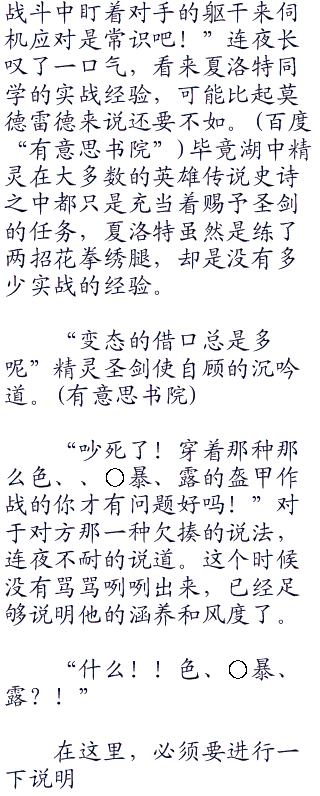 战斗中盯着对手的躯干来伺
机应对是常识吧！”连夜长
叹了一口气，看来夏洛特同
学的实战经验，可能比起莫
德雷德来说还要不如。(百度
“有意思书院”)毕竟湖中精
灵在大多数的英雄传说史诗
之中都只是充当着赐予圣剑
的任务，夏洛特虽然是练了
两招花拳绣腿，却是没有多
少实战的经验。
“变态的借口总是多
呢”精灵圣剑使自顾的沉吟
道。(有意思书院)
“吵死了！穿着那种那
么色、、○暴、露的盔甲作
战的你才有问题好吗！”对
于对方那一种欠揍的说法，
连夜不耐的说道。这个时候
没有骂骂咧咧出来，已经足
够说明他的涵养和风度了。
“什么！！色、○暴、
露？！”
在这里，必须要进行一
下说明